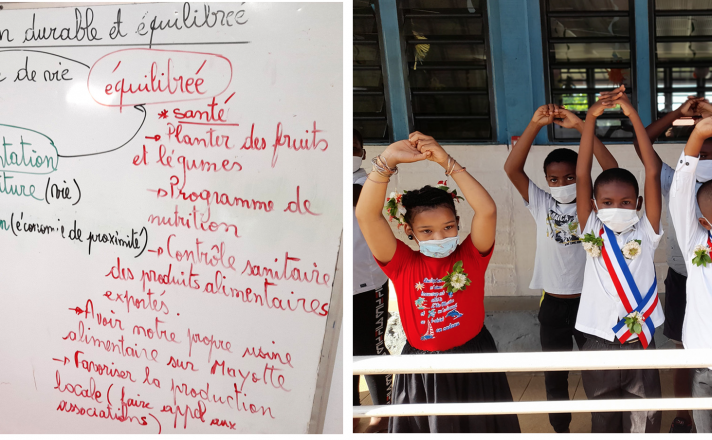 n durable et équilibreé
de vie
équilibreé
* santé
→ Planter des fruits
et légumes
→ Programme de
nutrition
→ Contrôle sanitaire
des produits alimentaires
exportés.
→ Avoir notre propre usine
alimentaire sur Mayotte
→ Favoriser la production
locale (faire appel aux
associations)
ntation
ture (vie)
n (économie de proximité)